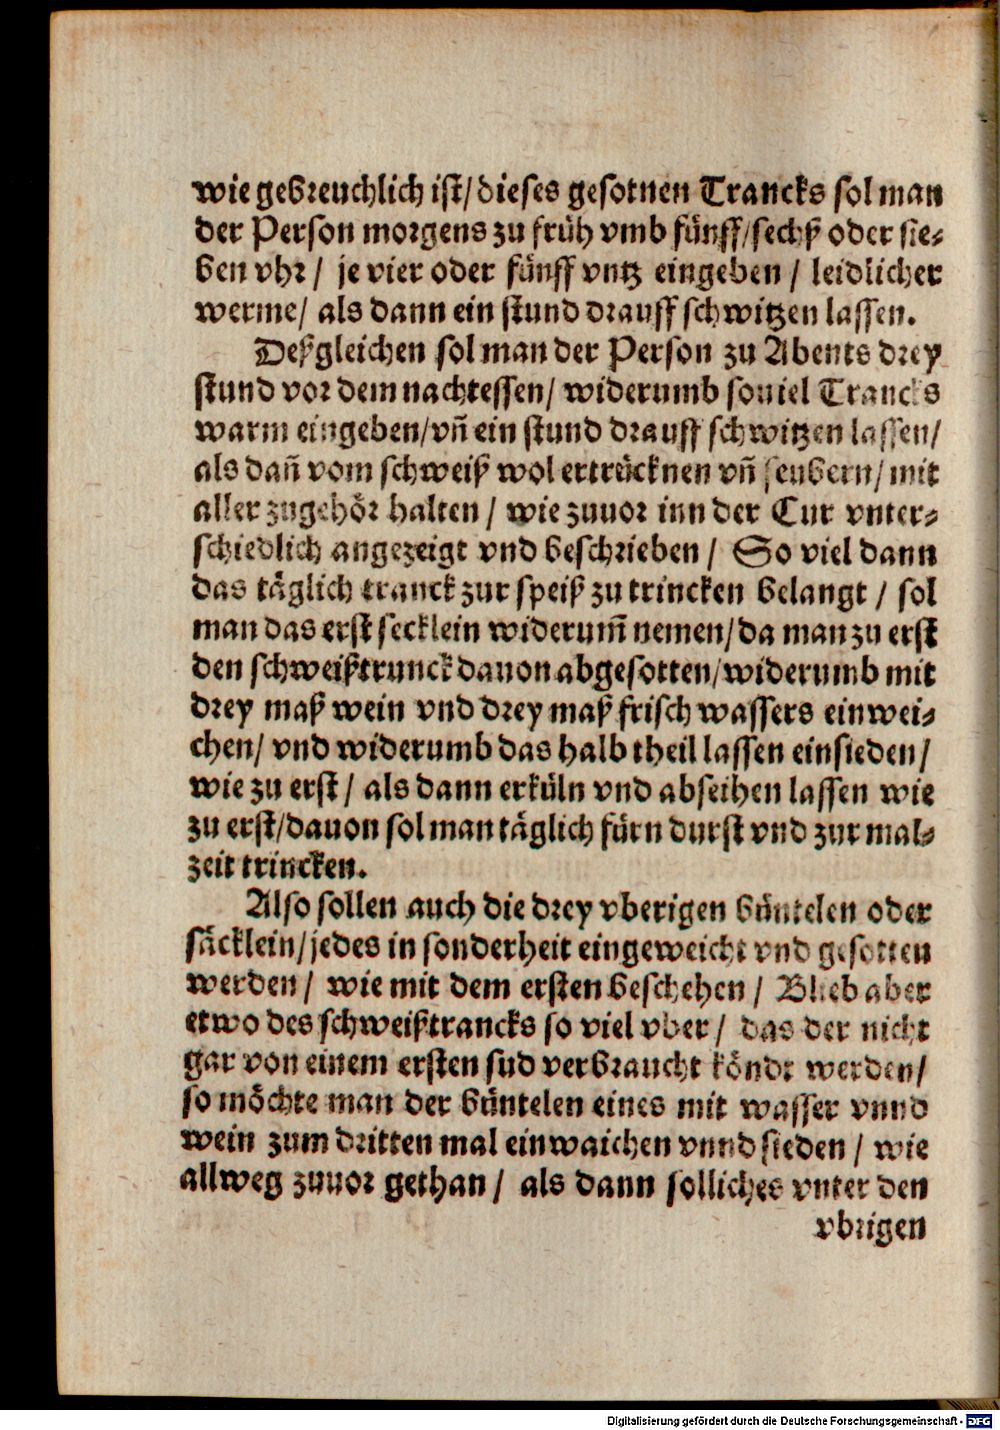 wie gebreuchlich ist/ dieses gesotnen Trancks sol man
der Person morgens zu früh vmb fünff/ sechß oder sie-
ben vhr / je vier oder fünff vntz eingeben / leidlicher
werme/ als dann ein stund drauff schwitzen lassen.
Deßgleichen sol man der Person zu Abents drey
stund vor dem nachtessen/ widerumb souiel Trancks
warm eingeben/ vñ ein stund drauff schwitzen lassen/
als dañ vom schweiß wol ertrücknen vñ seubern/ mit
aller zugehör halten / wie zuuor inn der Cur vnter-
schiedlich angezeigt vnd beschrieben / So viel dann
das täglich tranck zur speiß zu trincken belangt / sol
man das erst secklein widerum̃ nemen/ da man zu erst
den schweißtrunck dauon abgesotten/ widerumb mit
drey maß wein vnd drey maß frisch wassers einwei-
chen/ vnd widerumb das halb theil lassen einsieden/
wie zu erst / als dann erküln vnd abseihen lassen wie
zu erst/ dauon sol man täglich fürn durst vnd zur mal-
zeit trincken.
Also sollen auch die drey vberigen büntelen oder
säcklein/ jedes in sonderheit eingeweicht vnd gesotten
werden / wie mit dem ersten beschehen / Blieb aber
etwo des schweißtrancks so viel vber / das der nicht
gar von einem ersten sud verbraucht köndt werden/
so möchte man der büntelen eines mit wasser vnnd
wein zum dritten mal einwaichen vnnd sieden / wie
allweg zuuor gethan / als dann solliches vnter den
vbrigen
Digitalisierung gefördert durch die Deutsche Forschungsgemeinschaft - DFG